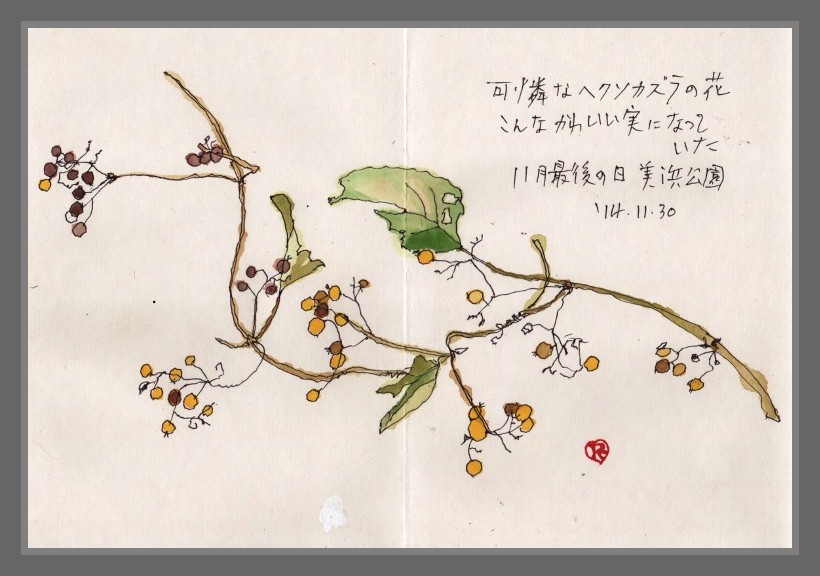 可憐なヘクソカズラの花
こんなかわいい実になって
いた
11月最後の日 美浜公園
'14.11.30
R